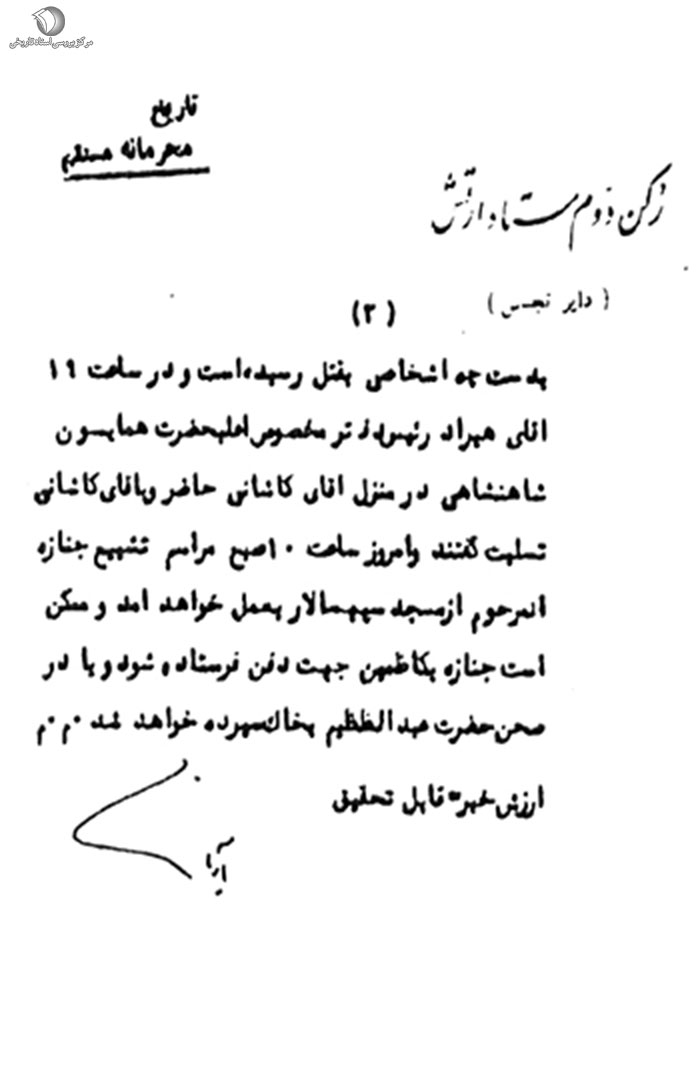 مرکز بررسی اسناد تاریخی
تاریخ
محرمانه مستقیم
رکن دوم ستاد ارتش
( دایر تجسس )
(۲)
بدست چه اشخاص بقتل رسیده است و در ساعت ۱۹
اقای هیراد رئیس دفتر مخصوص اعلیحضرت همایون
شاهنشاهی در منزل اقای کاشانی حاضر وباقای کاشانی
تسلیت گفتند وامروز ساعت ۱۰صبح مراسم تشییع جنازه
انمرحوم ازمسجد سپهسالار بعمل خواهد امد و ممکن
است جنازه بکاظمین جهت دفن فرستاده شود و یا در
صحن حضرت عبدالظظیم بخاك سپرده خواهد شد ۰م۰م
ارزش خبر = قابل تحقیق
آریا